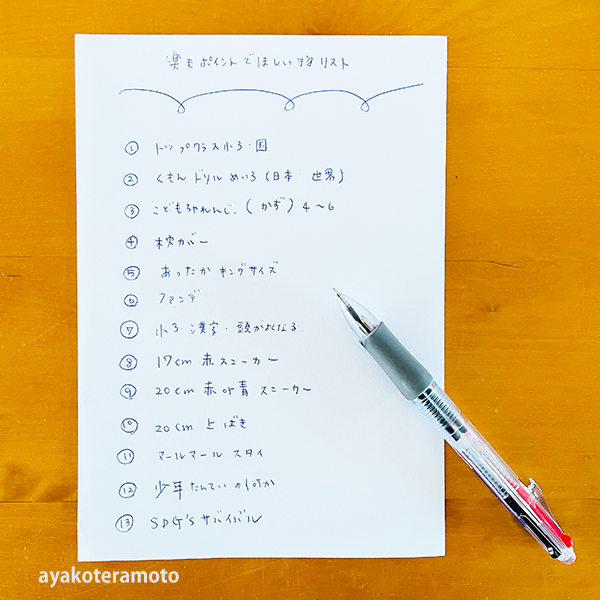 楽天ポイントでほしい物リスト
① トップクラス小3・国
② くもんドリルめいろ(日本・世界)
③ こどもちゃれんじ.(かず)4〜6
④ 枕カバー
⑤ あったかキングサイズ
⑥ ファンデ
⑦ 小3・漢字・頭がよくなる
⑧ 17cm 赤スニーカー
⑨ 20cm 赤or青 スニーカー
⑩ 20cm 上ばき
⑪ マールマール スタイ
⑫ 少年たんてい の何か
⑬ SDG's サバイバル
ayakoteramoto